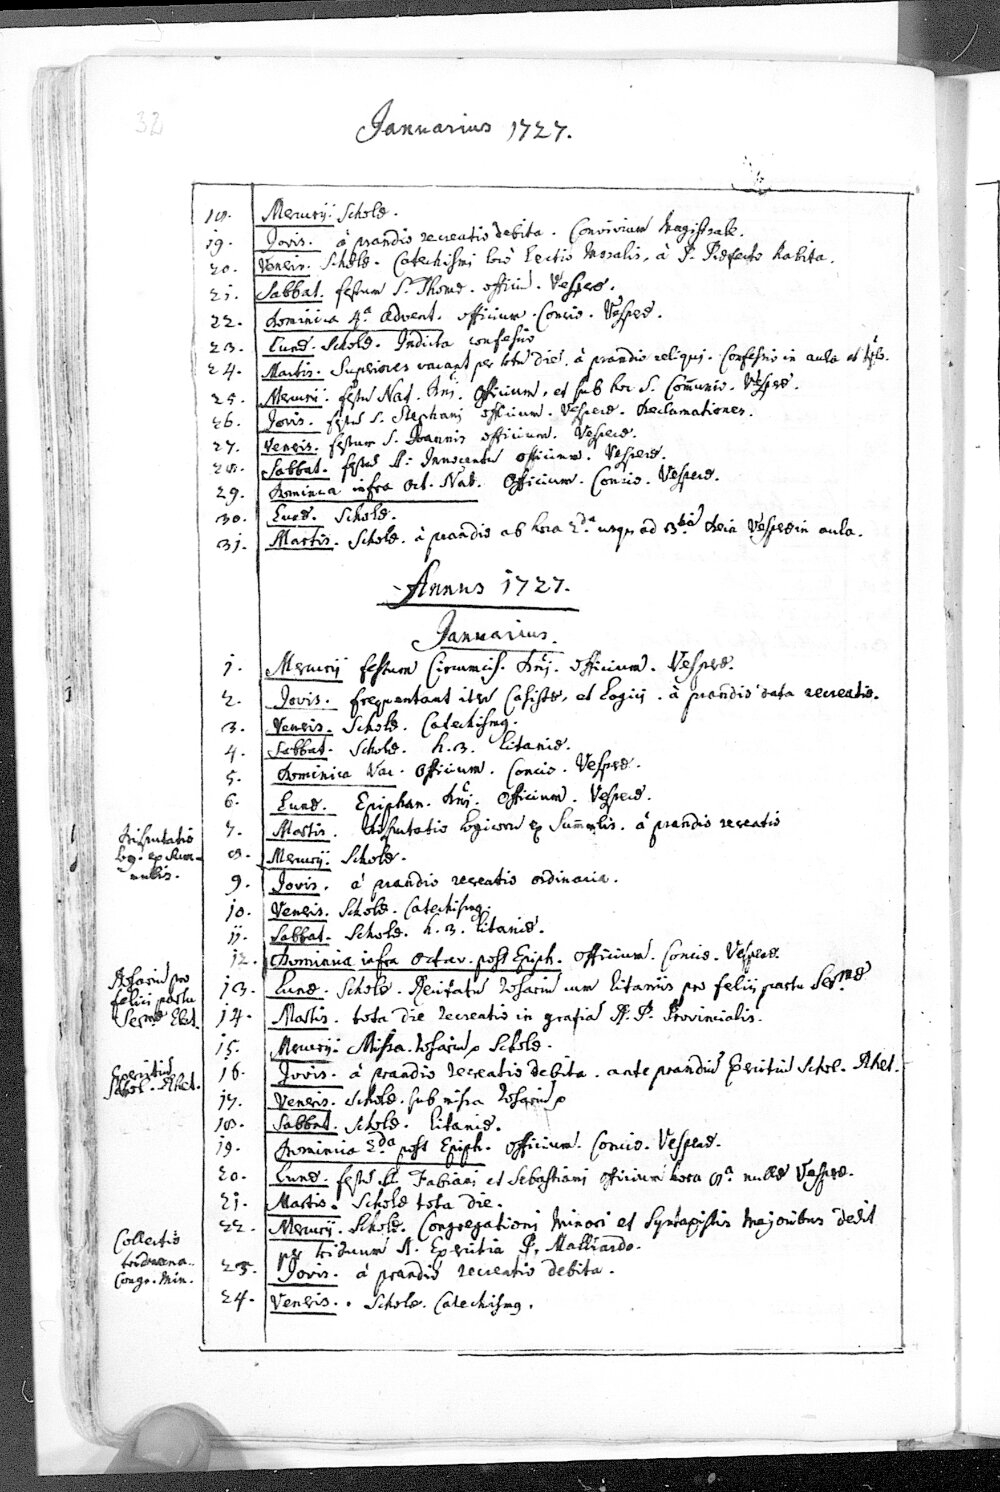 32
Januarius 1727.
18. Mercurij. Scholæ.
19. Jovis. à prandio recreatio debita. Convivium Magistrale.
20. Veneris. Scholæ. Catechismi loco Lectio Moralis, à P. Præfecto habita.
21. Sabbat. festum S. Thomæ. officium. Vesperæ.
22. Dominica 4.ta Advent. officium. Concio. Vesperæ.
23. Lunæ. Scholæ. Indicta confessio
24. Martis. Superiores vacant per totū diē. à prandio reliqui. Confessio in aula et
25. Mercurij. festū Nat. Dnj. Officium, et sub hoc S. Com̄unio. Vesperæ.
26. Jovis. festū S. Stephani officium. Vesperæ. Declamationes.
27. Veneris. festum S. Joannis officium. Vesperæ.
28. Sabbat. festū SS. Innocentū officium. Vesperæ.
29. Dominica infra Oct. Nat. Officium. Concio. Vesperæ.
30. Lunæ. Scholæ.
31. Martis. Scholæ. à prandio ab hora 2.da usque ad 3.tiā deia Vesperæ in aula.
Annus 1727.
Januarius.
1. Mercurij festum Circumcis. Dnj. officium. Vesperæ.
2. Jovis. frequentant iterū Casistæ, et Logici. à prandio data recreatio.
3. Veneris. Scholæ. Catechismg.
4. Sabbat. Scholæ. h. 3. Litaniæ.
5. Dominica Vac. Officium. Concio. Vesperæ.
6. Lunæ. Epiphan. Dnj. Officium. Vesperæ.
7. Martis. Disputatio Logicorū ex Summulis. à prandio recreatio
Disputatio
Log. ex Sum-
mulis.
8. Mercurij. Scholæ.
9. Jovis. à prandio recreatio ordinaria.
10. Veneris. Scholæ. Catechismg.
11. Sabbat. Scholæ. h. 3. Litaniæ.
12. Dominica infra Octav. post Epiph. Officium. Concio. Vesperæ.
Rosariū pro
felici partu
Sermæ Elect.
13. Lunæ. Scholæ. Recitatū Rosariū cum Litaniis pro felici partu Sermæ
14. Martis. tota die recreatio in gratiā R. P. Provincialis.
15. Mercurij. Missa. Rosariū Scholæ.
Exercitiū
Schol. Rhet.
16. Jovis. à prandio recreatio debita. ante prandiū Exercitiū Schol. Rhet.
17. Veneris. Scholæ. sub missa Rosariū
18. Sabbat. Scholæ. Litaniæ.
19. Dominica 2.da post Epiph. Officium. Concio. Vesperæ.
20. Lunæ. festū SS. Fabiani et Sebastiani officium hora 8.a nullæ Vesperæ.
21. Martis. Scholæ tota die.
22. Mercurij. Scholæ. Congregationi Minori et Syntaxistis majoribus dedit
per triduum S. Exercitia P. Malliardo.
Collectio
triduana
Congr. Min.
23. Jovis. à prandio recreatio debita.
24. Veneris. Scholæ. Catechismg.